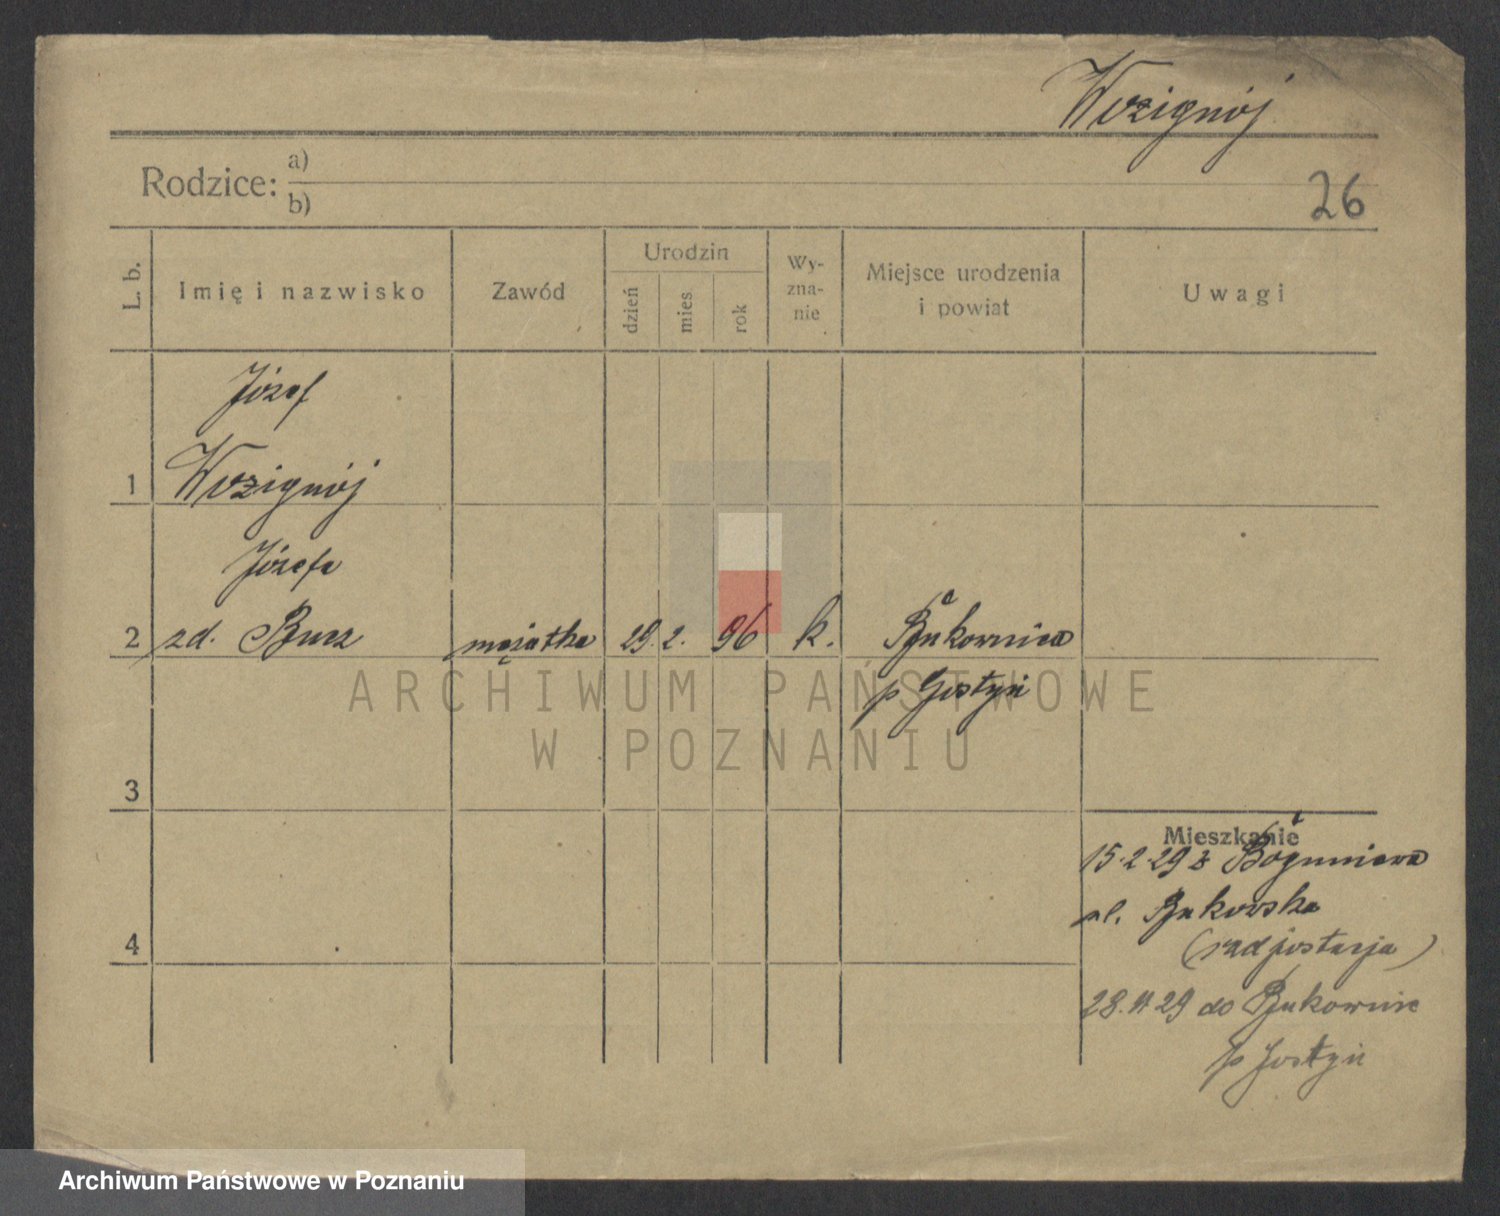 Wozignój
Rodzice: a)
b)
26
L. b.
Imię i nazwisko
Zawód
Urodzin
dzień
mies
rok
Wy-
zna-
nie
Miejsce urodzenia
i powiat
Uwagi
Józef
1 Wozignój
Józefa
2 zd. Bucz mężatka 29. 2. 96 k. Bukownica
p Gostyń
3
4
Mieszkanie
15.2.29 z Boguniewa
ul. Bukowska
(radjostacja)
28.11.29 do Bukownic
p Gostyń
ARCHIWUM PAŃSTWOWE
W POZNANIU
Archiwum Państwowe w Poznaniu